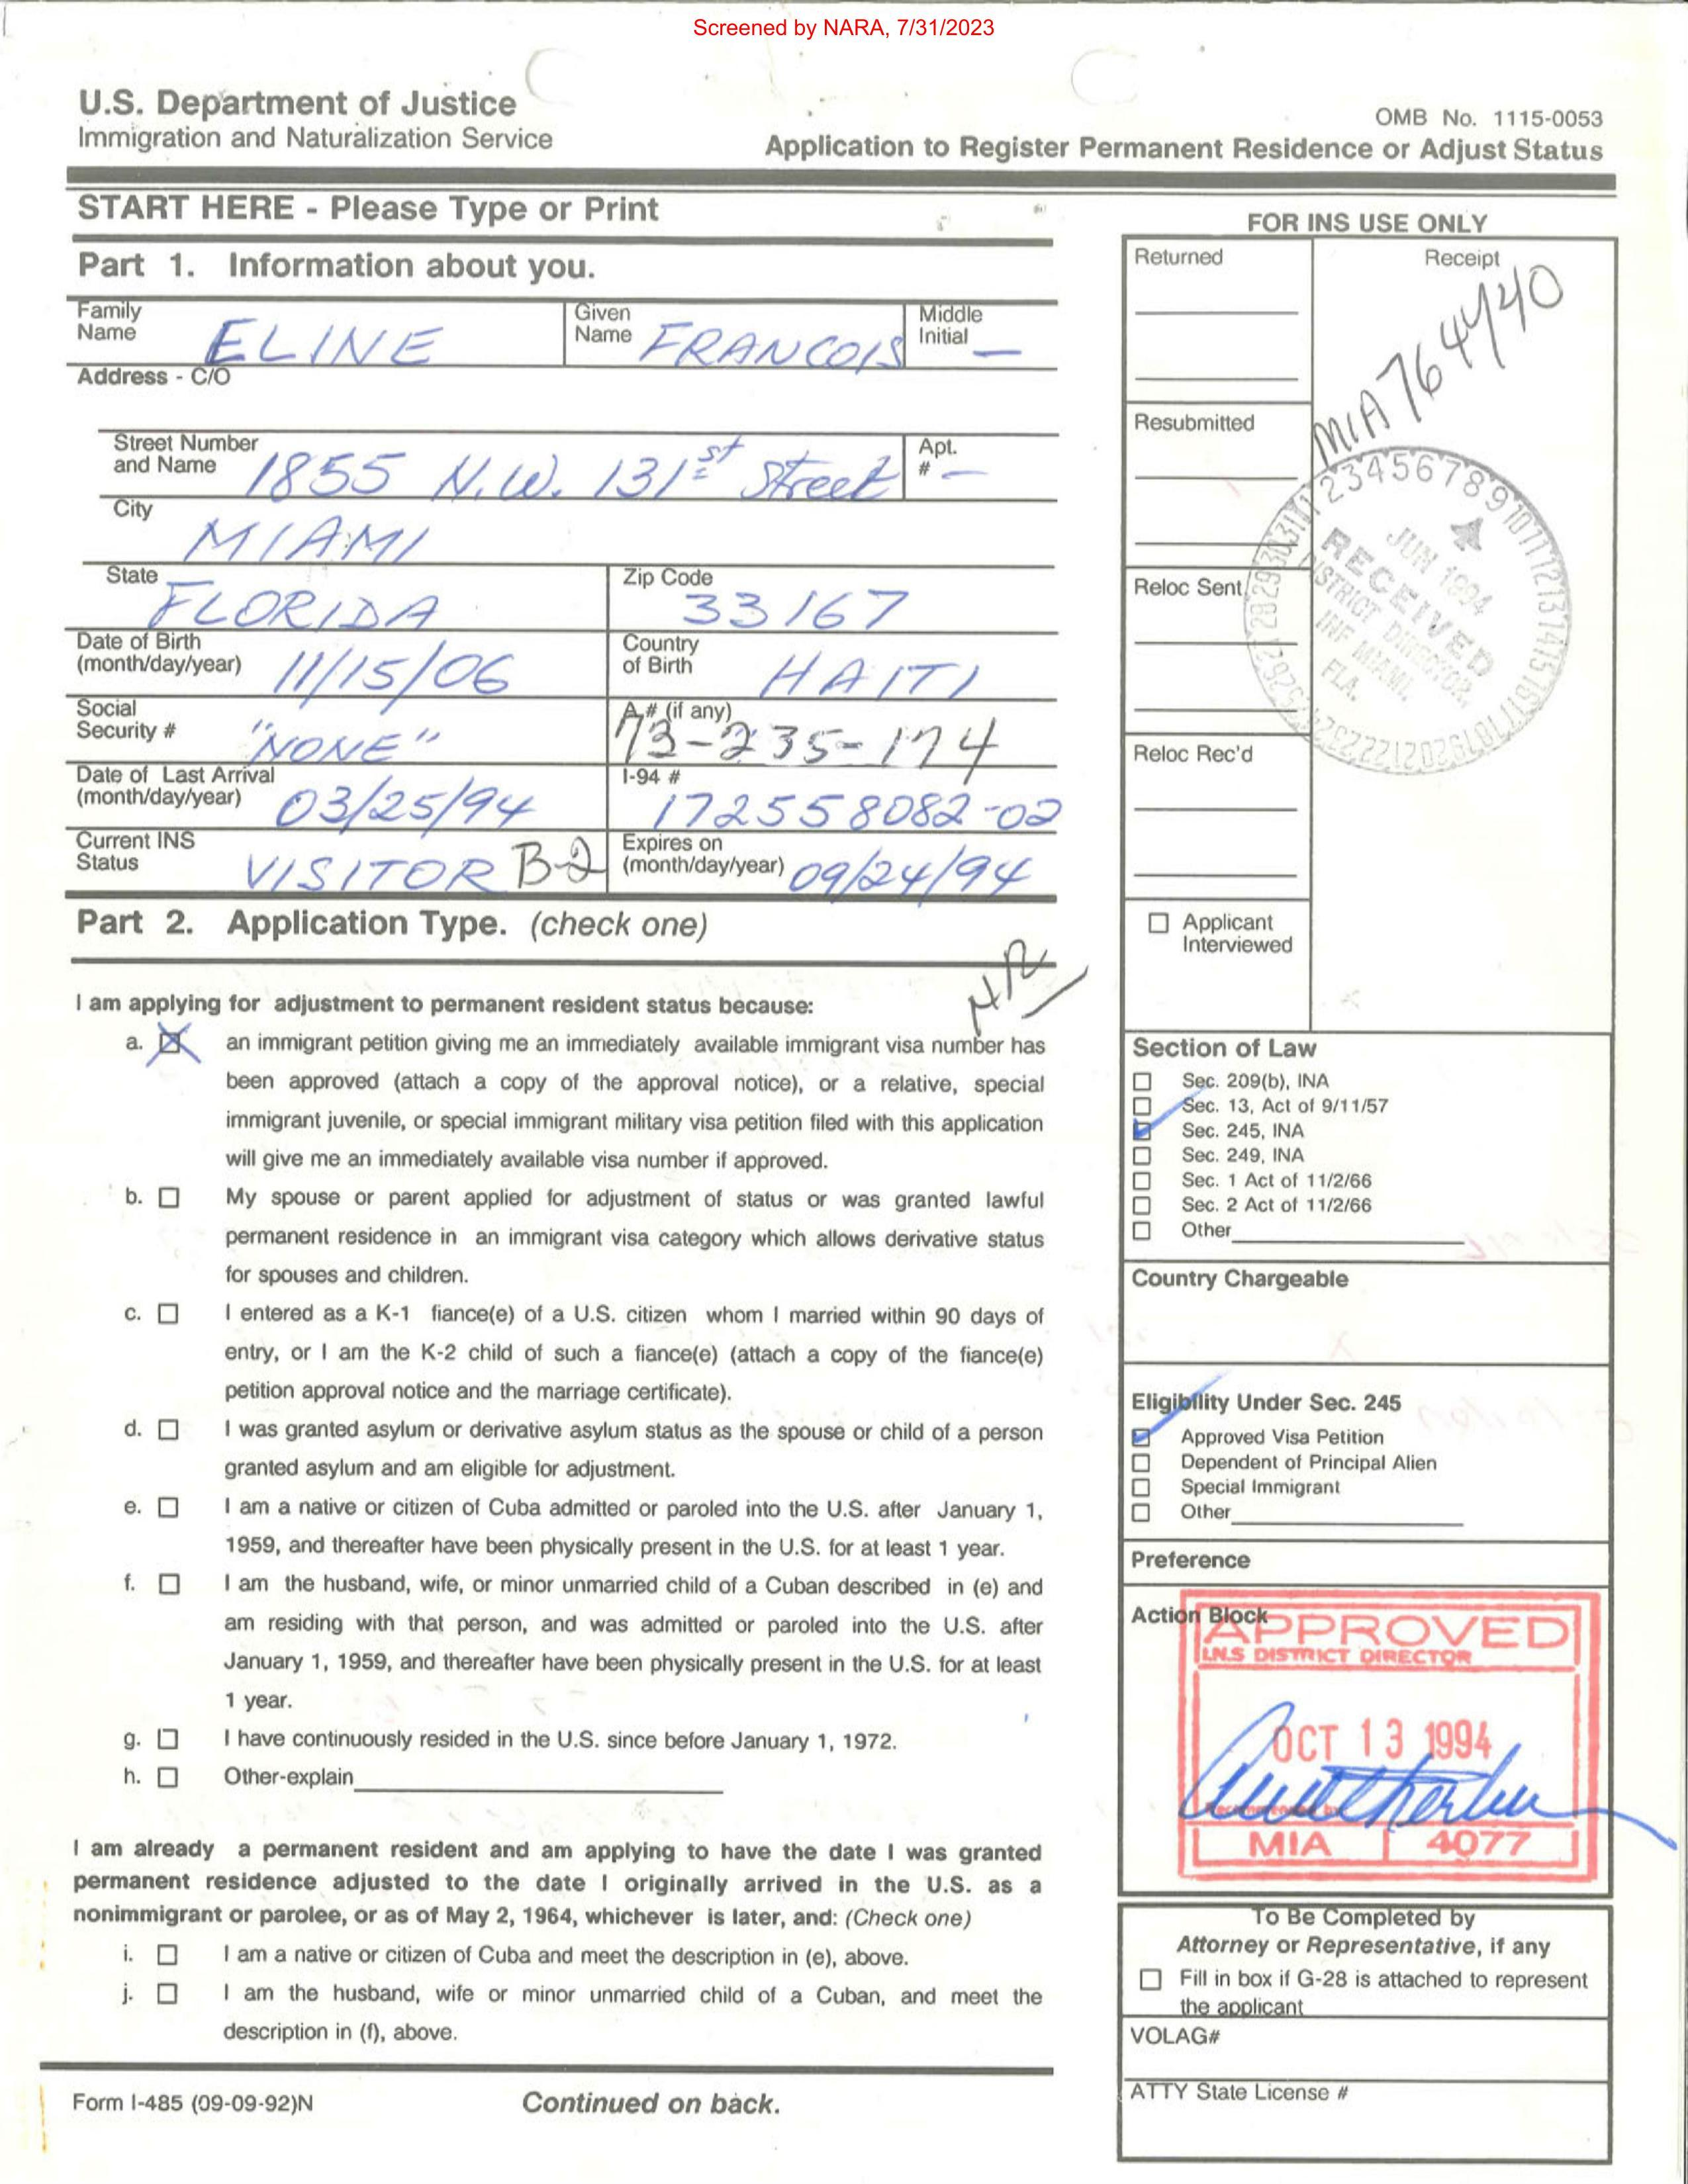 Screened by NARA, 7/31/2023
U.S. Department of Justice
Immigration and Naturalization Service
OMB No. 1115-0053
Application to Register Permanent Residence or Adjust Status
START HERE - Please Type or Print
Part 1. Information about you.
Family Name ELINE
Given Name FRANCOIS
Middle Initial —
Address - C/O
Street Number and Name 1855 N.W. 131st Street
Apt. # —
City MIAMI
State FLORIDA
Zip Code 33167
Date of Birth (month/day/year) 11/15/06
Country of Birth HAITI
Social Security # "NONE"
A # (if any) 73-235-174
Date of Last Arrival (month/day/year) 03/25/94
I-94 # 172558082-02
Current INS Status VISITOR B-2
Expires on (month/day/year) 09/24/94
Part 2. Application Type. (check one)
I am applying for adjustment to permanent resident status because:
a. an immigrant petition giving me an immediately available immigrant visa number has
been approved (attach a copy of the approval notice), or a relative, special
immigrant juvenile, or special immigrant military visa petition filed with this application
will give me an immediately available visa number if approved.
b. My spouse or parent applied for adjustment of status or was granted lawful
permanent residence in an immigrant visa category which allows derivative status
for spouses and children.
c. I entered as a K-1 fiance(e) of a U.S. citizen whom I married within 90 days of
entry, or I am the K-2 child of such a fiance(e) (attach a copy of the fiance(e)
petition approval notice and the marriage certificate).
d. I was granted asylum or derivative asylum status as the spouse or child of a person
granted asylum and am eligible for adjustment.
e. I am a native or citizen of Cuba admitted or paroled into the U.S. after January 1,
1959, and thereafter have been physically present in the U.S. for at least 1 year.
f. I am the husband, wife, or minor unmarried child of a Cuban described in (e) and
am residing with that person, and was admitted or paroled into the U.S. after
January 1, 1959, and thereafter have been physically present in the U.S. for at least
1 year.
g. I have continuously resided in the U.S. since before January 1, 1972.
h. Other-explain
I am already a permanent resident and am applying to have the date I was granted
permanent residence adjusted to the date I originally arrived in the U.S. as a
nonimmigrant or parolee, or as of May 2, 1964, whichever is later, and: (Check one)
i. I am a native or citizen of Cuba and meet the description in (e), above.
j. I am the husband, wife or minor unmarried child of a Cuban, and meet the
description in (f), above.
Form I-485 (09-09-92)N
Continued on back.
FOR INS USE ONLY
Returned
Receipt
MIA 764440
Resubmitted
Reloc Sent
RECEIVED
JUN 1994
DISTRICT DIRECTOR
INF MIAMI,
FLA.
Reloc Rec'd
Applicant
Interviewed
Section of Law
Sec. 209(b), INA
Sec. 13, Act of 9/11/57
Sec. 245, INA
Sec. 249, INA
Sec. 1 Act of 11/2/66
Sec. 2 Act of 11/2/66
Other
Country Chargeable
Eligibility Under Sec. 245
Approved Visa Petition
Dependent of Principal Alien
Special Immigrant
Other
Preference
Action Block
APPROVED
I.N.S DISTRICT DIRECTOR
OCT 13 1994
Recommended by
MIA 4077
To Be Completed by
Attorney or Representative, if any
Fill in box if G-28 is attached to represent
the applicant
VOLAG#
ATTY State License #